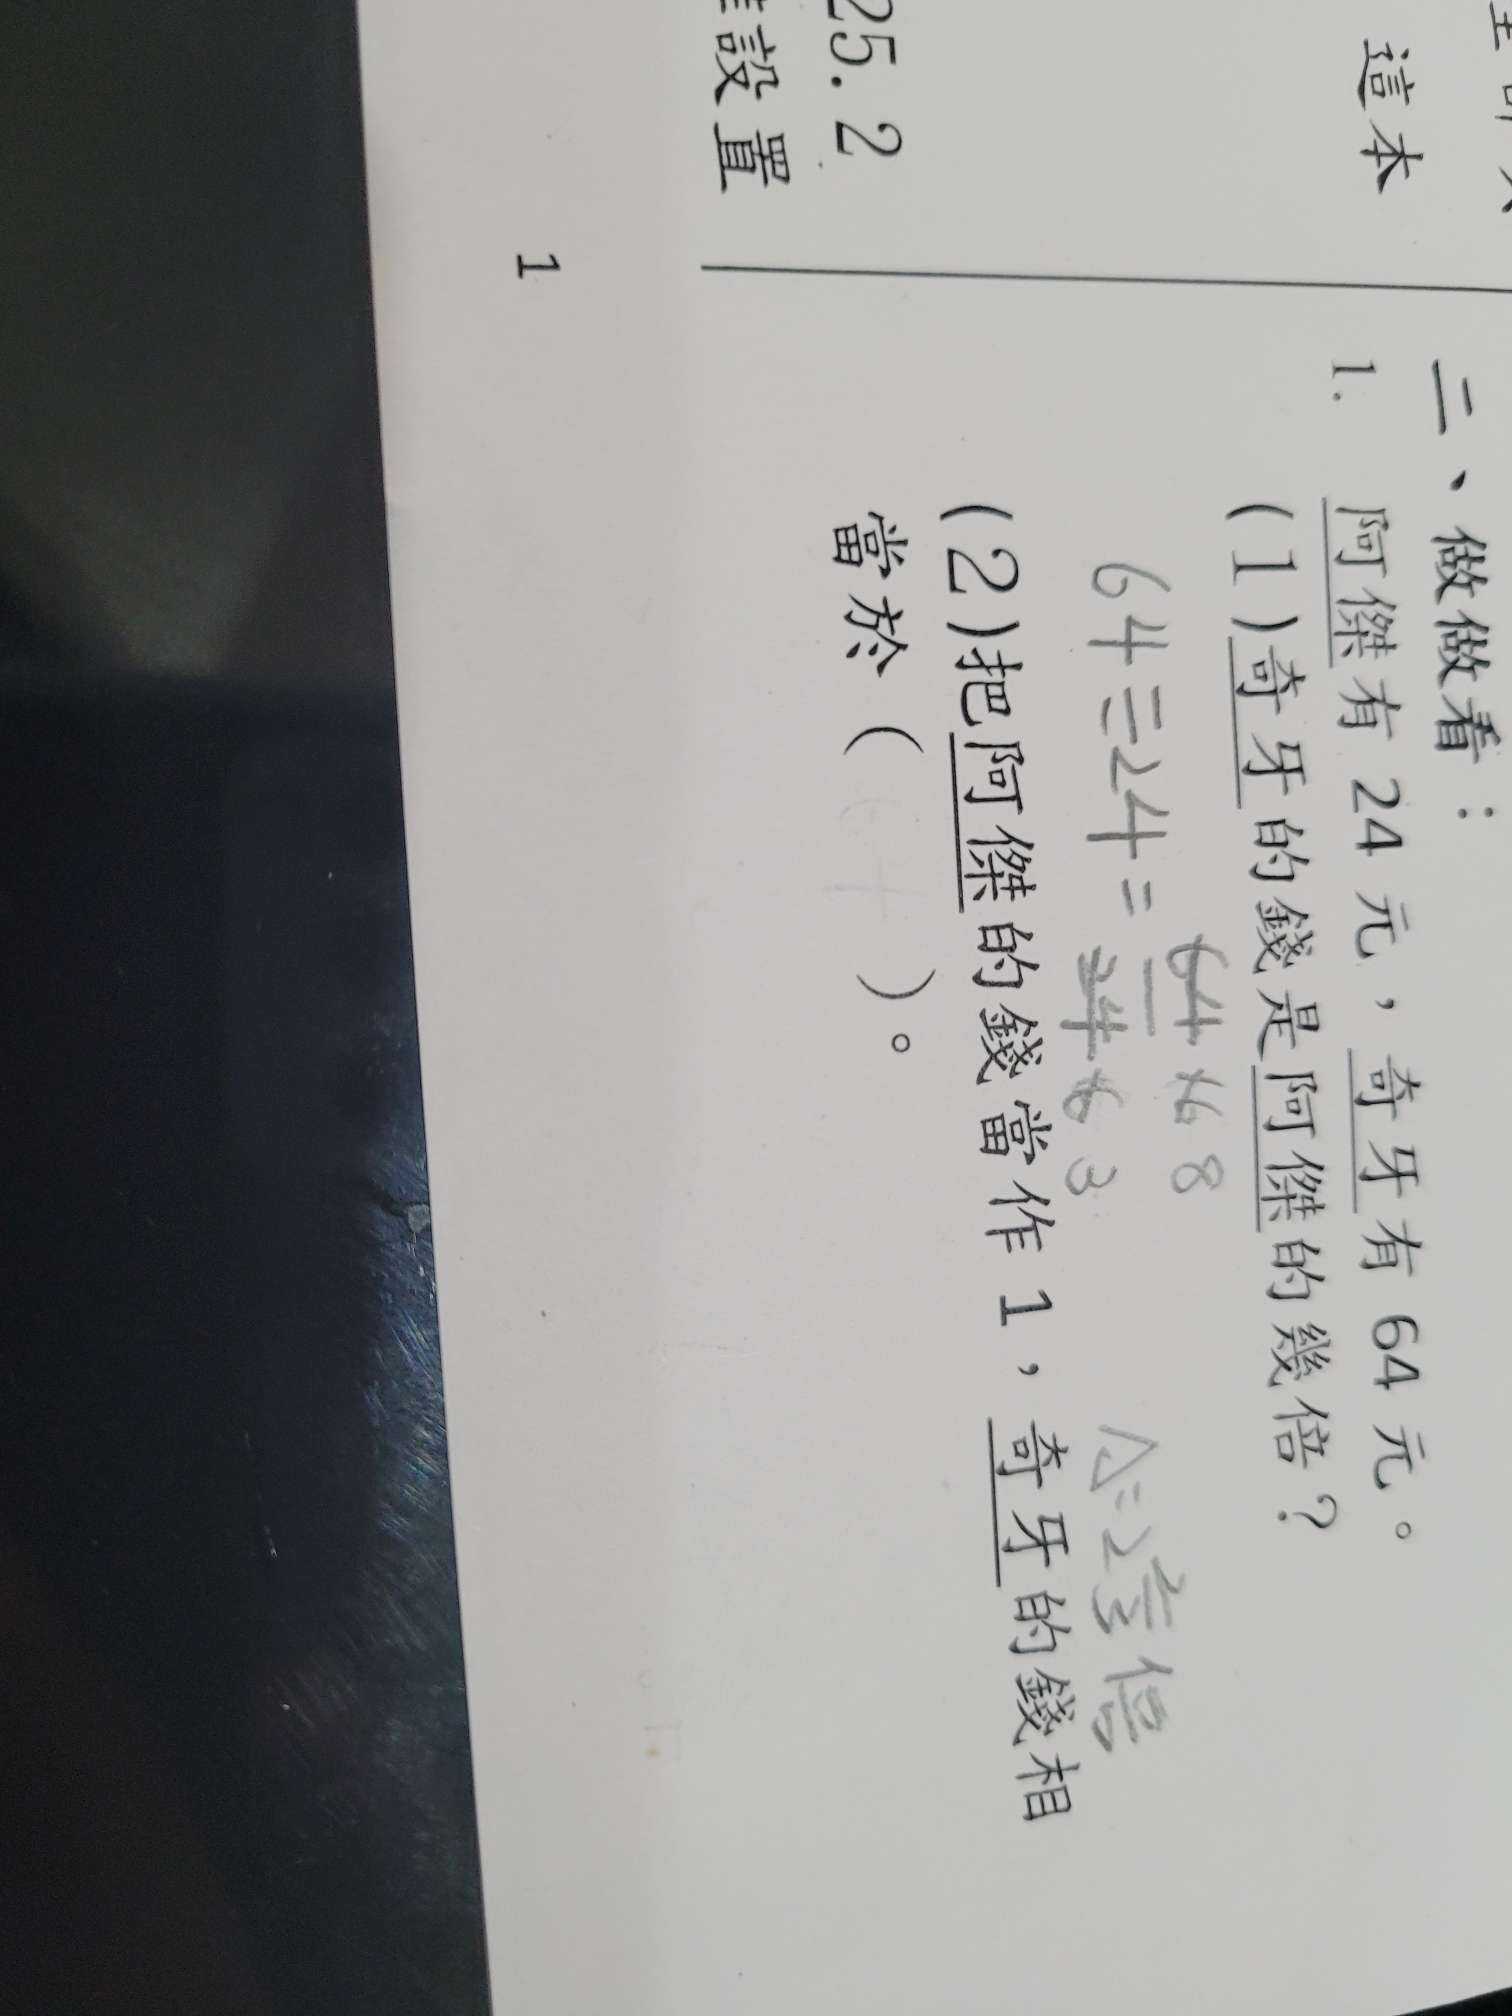 這本
25.2
設置
二、做做看：
1. 阿傑有 24 元，奇牙有 64 元。
(1)奇牙的錢是阿傑的幾倍？
64÷24=64/24 16 6 8 3
A:2 2/3倍
(2)把阿傑的錢當作 1，奇牙的錢相
當於（ ）。
1